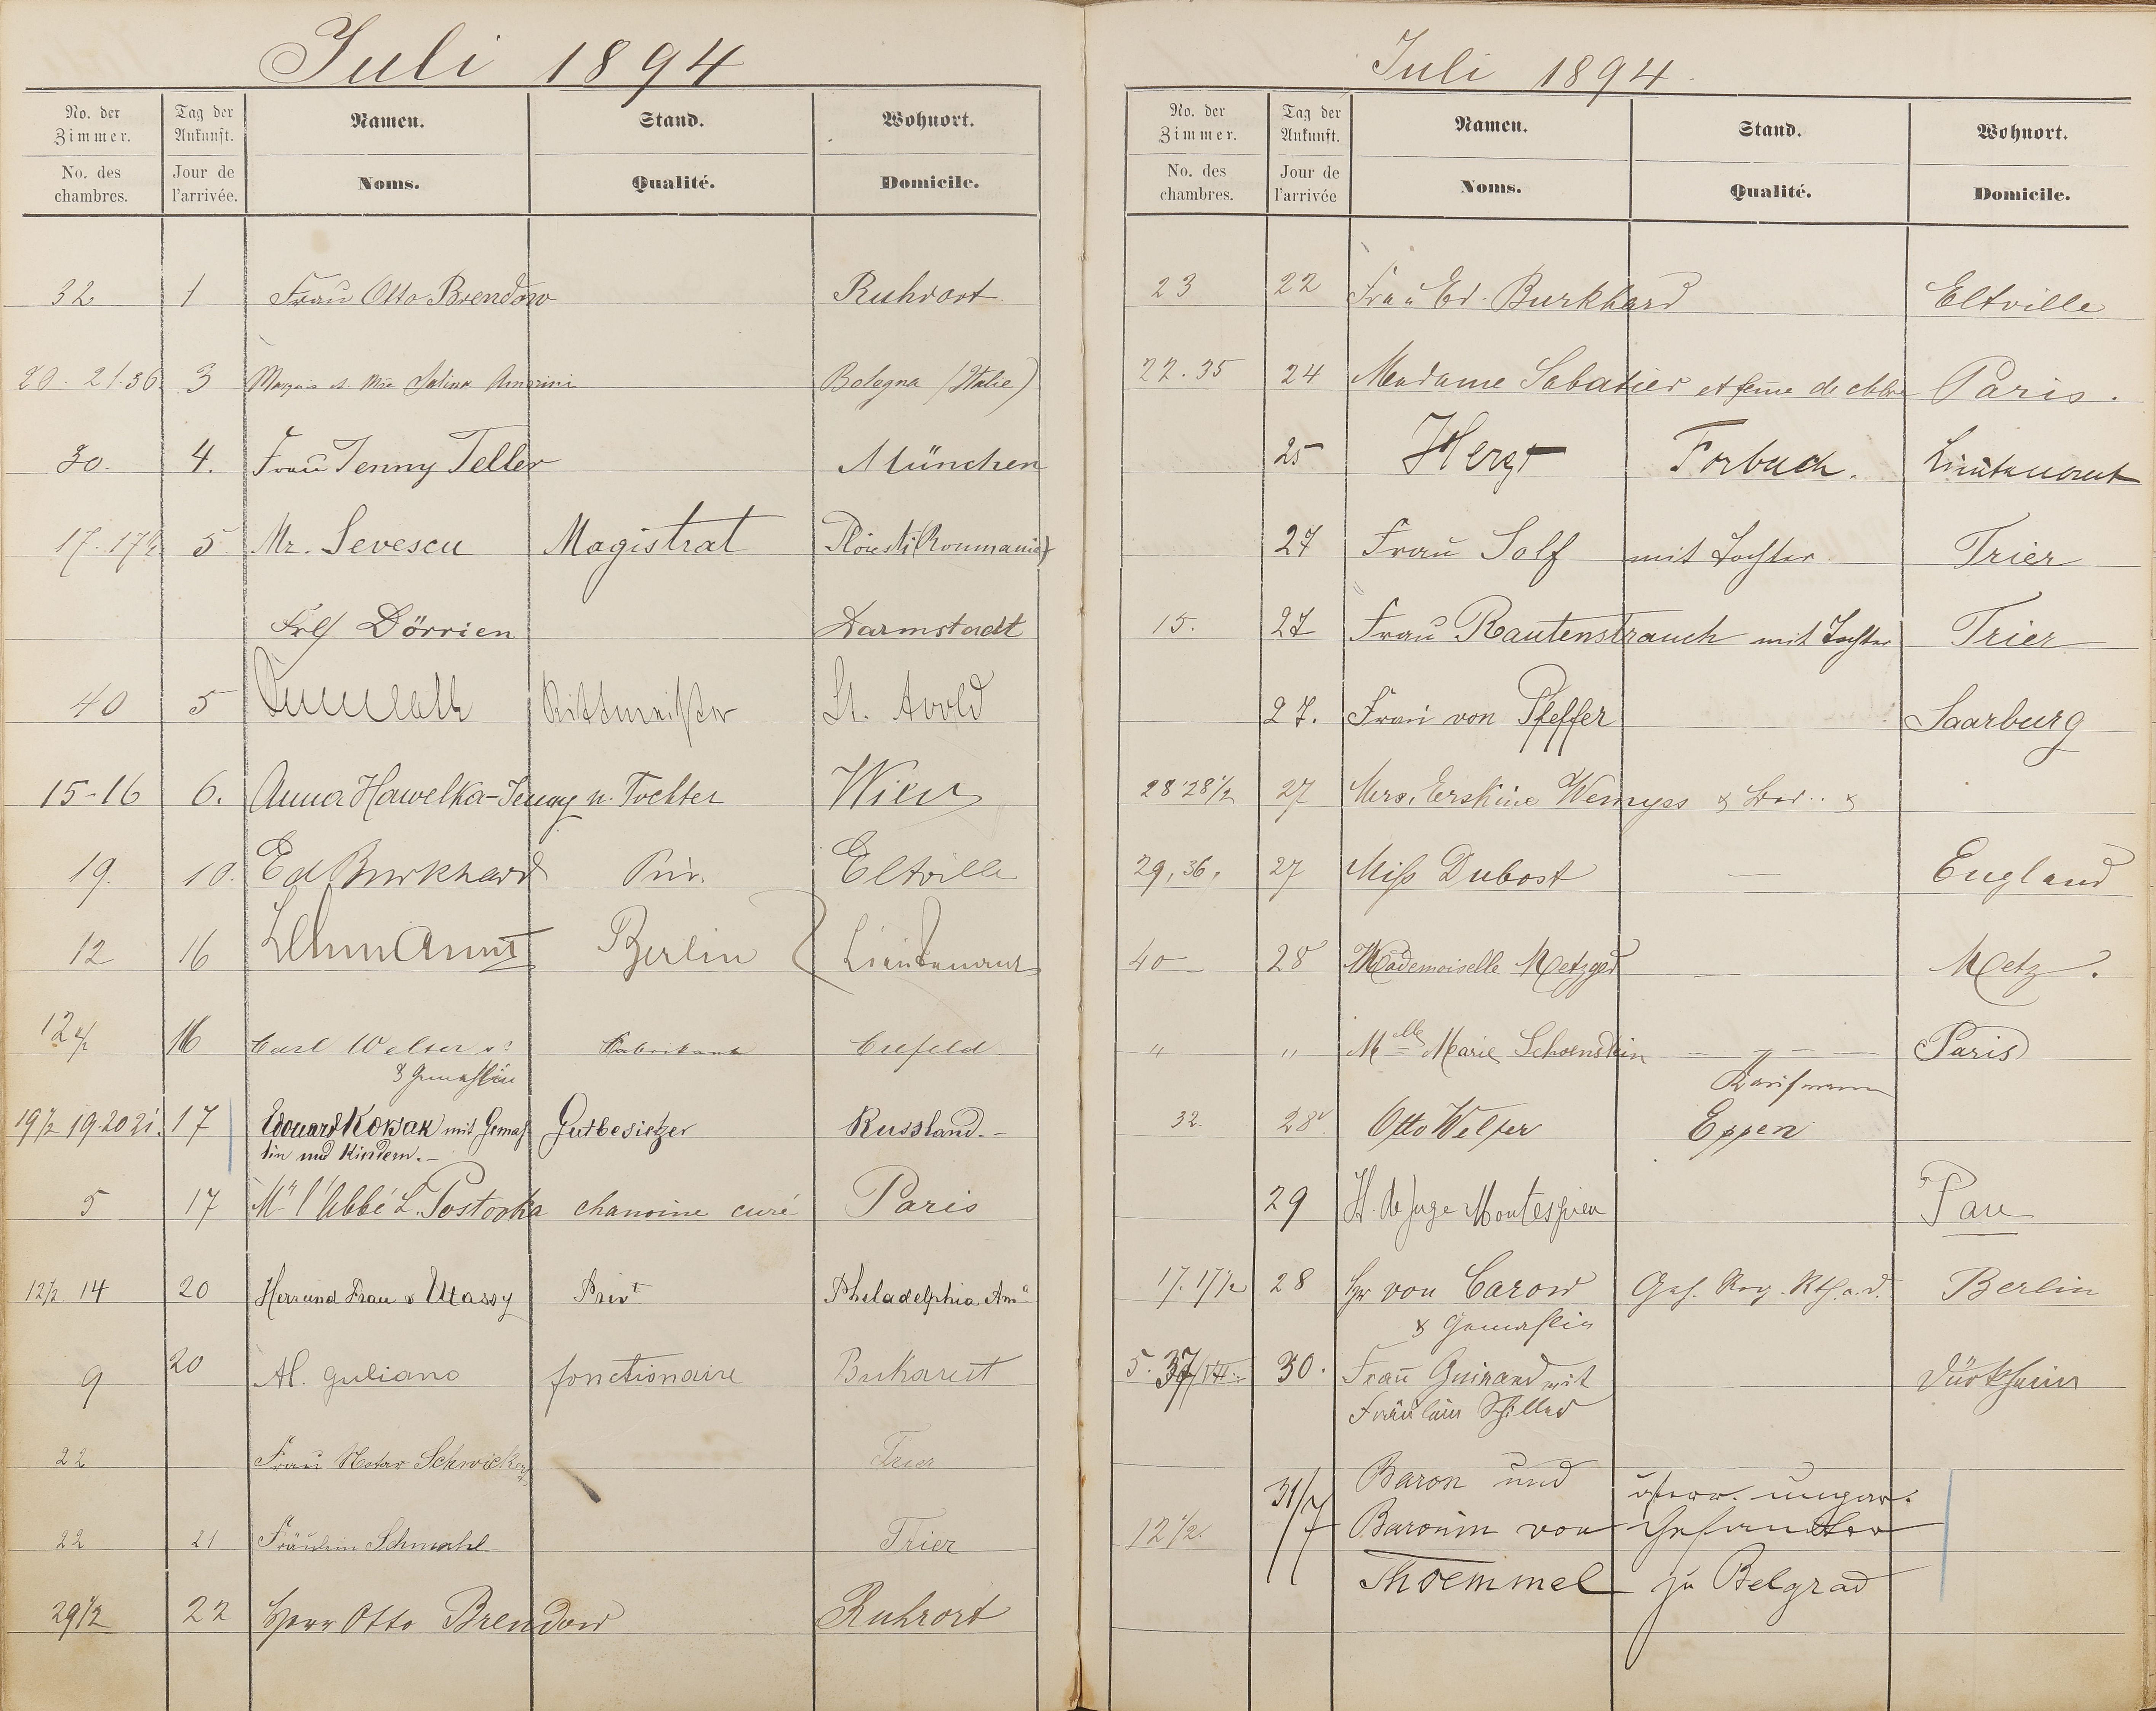 Juli 1894
No. der Zimmer. Tag der Ankunft. Namen. Stand. Wohnort.
No. des chambres. Jour de l'arrivée. Noms. Qualité. Domicile.
32 1 Frau Otto Brendow Ruhrort
20. 21. 36. 3 Marquis et Mse Salina Amorini Bologna (Italie)
30. 4. Frau Jenny Teller München
17. 17½ 5. Mr. Sevescu Magistrat Ploiesti (Roumanie)
Frl Dörrien Darmstadt
40 5 Rittmeister St. Avold
15-16 6. Anna Hawelka-Jenny u. Tochter Wien
19. 10. Ed Burkhard Priv. Eltville
12 16 Lehmann Berlin Lieutenant
12½ 16 Carl Welter Fabrikant Crefeld
& Gemahlin
19½ 19. 20 21. 17 Edouard Korsak mit Gemah Gutbesietzer Russland.-
lin und Kindern.-
5 17 Mr l'Abbé L. Postovka chanoine curé Paris
12½. 14 20 Herr und Frau v Utassy Privt Philadelphia Ama
9 20 Al. Guliano fonctionaire Bukarest
22 Frau Notar Schwickert Trier
22 21 Fräulein Schmahl Trier
29½ 22 Herr Otto Brendow Ruhrort
Juli 1894.
No. der Zimmer. Tag der Ankunft. Namen. Stand. Wohnort.
No. des chambres. Jour de l'arrivée Noms. Qualité. Domicile.
23 22 Frau Ed. Burkhard Eltville
22. 35 24 Madame Sabatier et feme de chbre Paris.
25 Hergt Forbach. Lieutenant
27 Frau Solf mit Tochter Trier
15. 27 Frau Rautenstrauch mit Tochter Trier
27. Frau von Pfeffer Saarburg
28 28½ 27 Mrs. Erskine Wemyss &
29, 36, 27 Miss Dubost — England
40 — 28 Mademoiselle Metzger — Metz.
" " Mlle Marie Schoenstein — — — Paris
Kaufmann
32. 28 Otto Welter Essen
29 H. de Juge Montespieu Pau
17. 17½ 28 Hr von Carow Geh. Reg. Rth. a. d. Berlin
& Gemahlin
5. 37 30. Frau Guinand mit Dürkheim
Fräulein Schiller
31/7 Baron und österr. ungar.
12½. Baronin von Gesandter
Thoemmel zu Belgrad